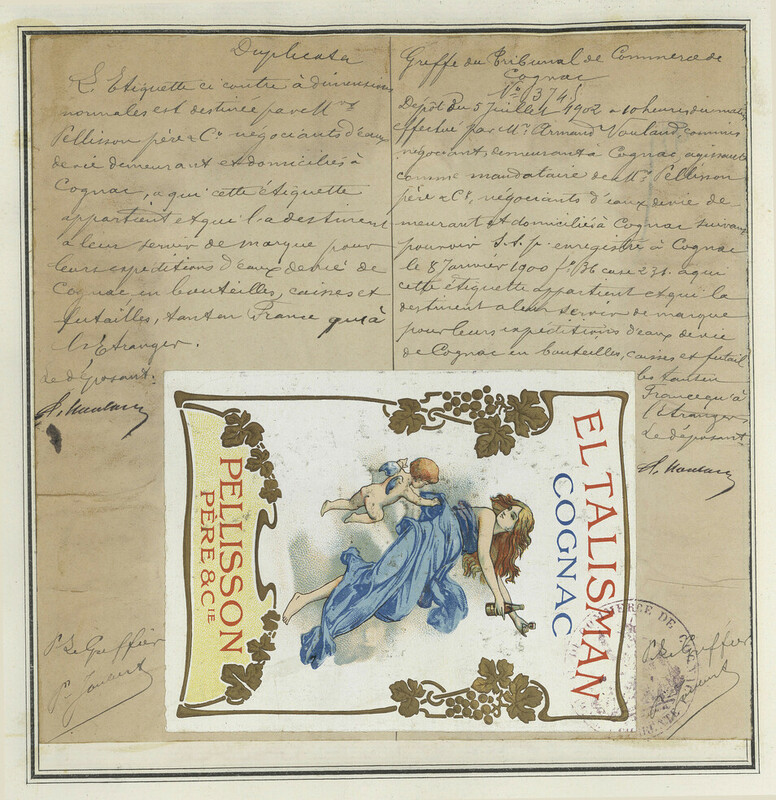 Duplicata
L'Etiquette ci contre à dimensions
normales est destinée par Mrs
Pellisson père & Cie négociants d'eaux
de vie demeurant et domiciliés à
Cognac, a qui cette étiquette
appartient et qui la destinent
a leur servir de marque pour
leurs expéditions d'eaux de vie de
Cognac en bouteilles, caisses et
futailles, tant en France qu'à
l'Etranger.
Le déposant.
Greffe du Tribunal de Commerce de
Cognac
No 3745
Dépôt du 5 Juillet 1902 a 10 heures du matin
effectué par Mr Armand commis
négociant demeurant à Cognac, agissant
comme mandataire de Mrs Pellisson
père & Cie, négociants d'eaux de vie de
meurant et domiciliés à Cognac suivant
pouvoir S.S.p. enregistré à Cognac
le 8 Janvier 1900 fo 36 case 231. a qui
cette étiquette appartient et qui la
destinent a leur servir de marque
pour leurs expéditions d'eaux de vie
de Cognac en bouteilles, caisses et futail
les tant en
France qu'à
l'Etranger
Le déposant
EL TALISMAN
COGNAC
PELLISSON
PÈRE & CIE
P. Le Greffier
P. Le Greffier
COMMERCE DE